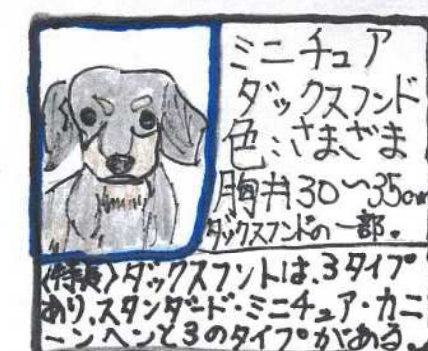 ミニチュア
ダックスフンド
色:さまざま
胸囲30〜35cm
ダックスフンドの一部。
〈特長〉ダックスフントは、3タイプ
あり、スタンダード・ミニチュア・カニ
ーンヘンと3のタイプがある。